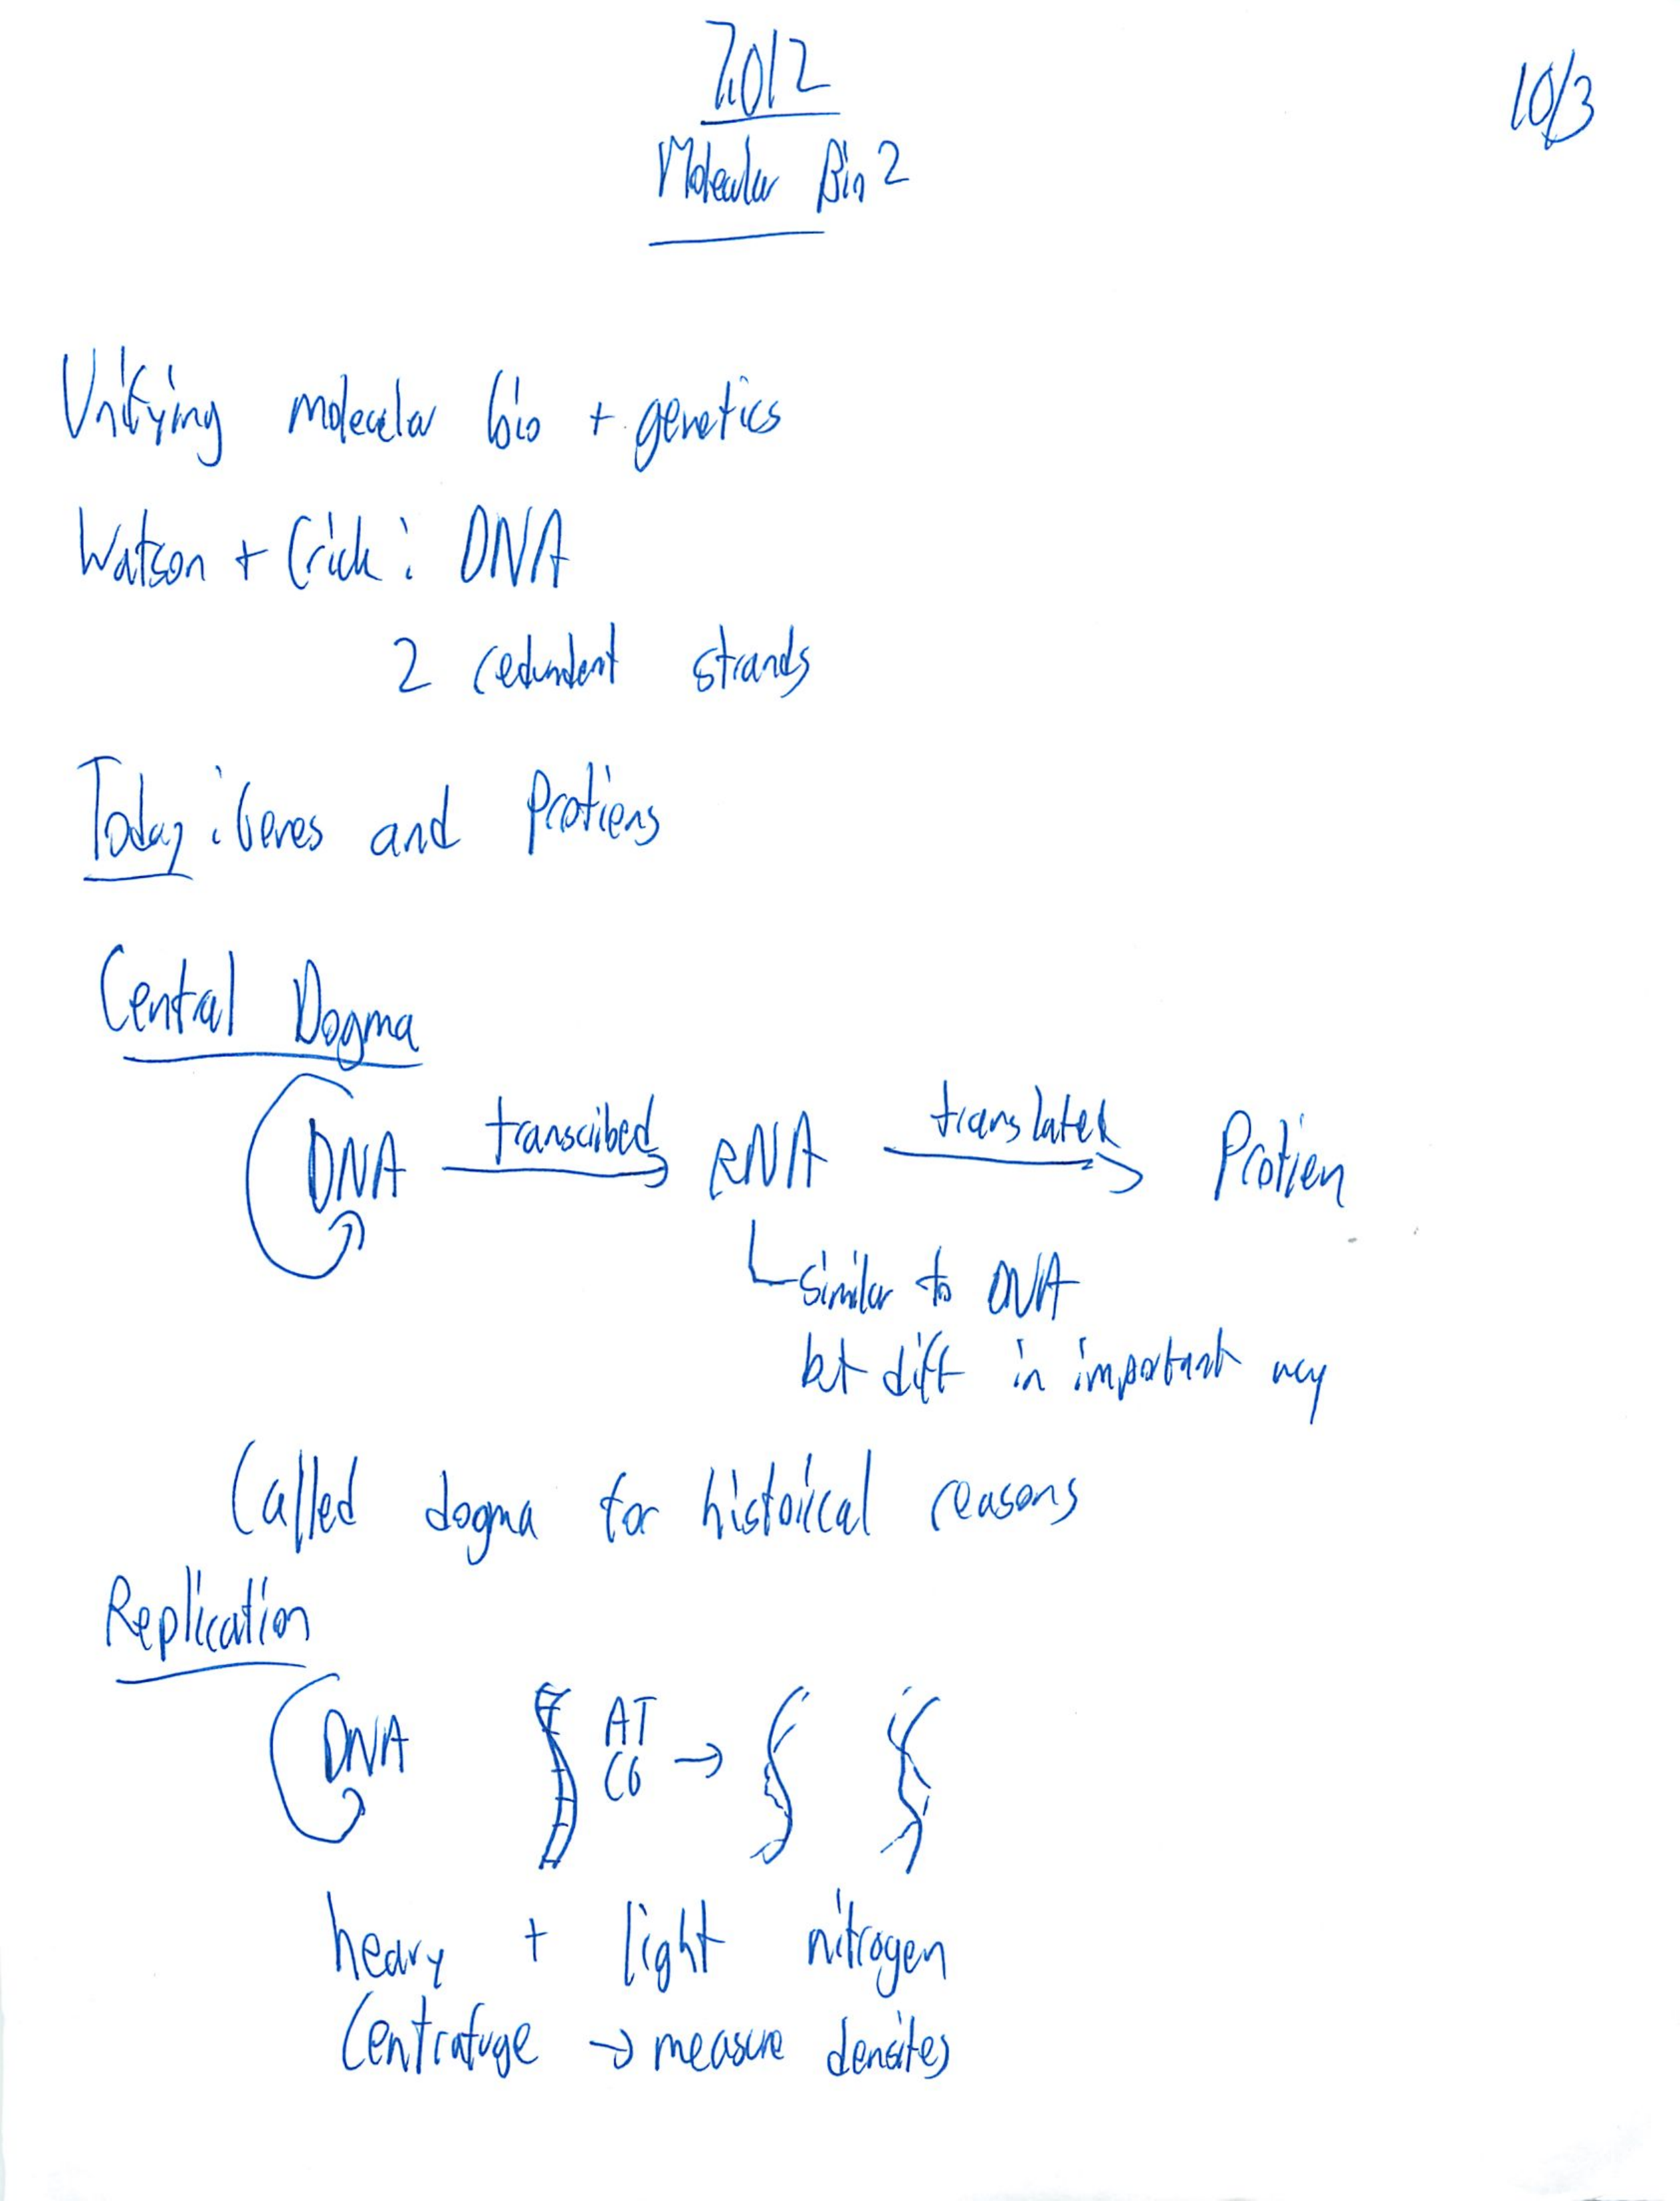 7.012
10/3
Molecular Bio 2
Unifying molecular bio + genetics
Watson + Crick: DNA
2 redundent strands
Today: Genes and Protiens
Central Dogma
DNA transcribed RNA translated Protien
similar to DNA
but diff in important way
Called dogma for historical reasons
Replication
DNA AT
CG →
heavy + light nitrogen
Centrafuge → measure densites